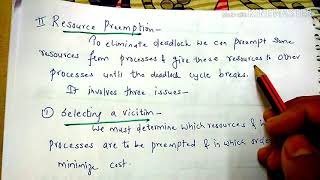 II Resource Preemption-
To eliminate deadlock we can preempt some
resources from processes & give these resources to other
processes until the deadlock cycle breaks.
It involves three issues-
① Selecting a vicitim-
We must determine which resources &
processes are to be preempted & in which
minimize cost.